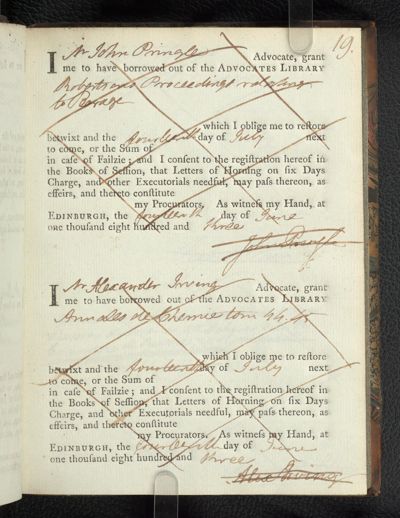 19.
I Mr John Pringle Advocate, grant
me to have borrowed out of the ADVOCATES LIBRARY
Robertson's Proceedings relating
to Peerage
which I oblige me to reſtore
betwixt and the fourteenth day of July next
to come, or the Sum of
in caſe of Failzie; and I conſent to the regiſtration hereof in
the Books of Seſſion, that Letters of Horning on ſix Days
Charge, and other Executorials needful, may paſs thereon, as
effeirs, and thereto conſtitute
my Procurators. As witneſs my Hand, at
EDINBURGH, the fourteenth day of June
one thouſand eight hundred and three
John Pringle
I Mr Alexander Irving Advocate, grant
me to have borrowed out of the ADVOCATES LIBRARY
Annales de Chemie tom 44. 45
which I oblige me to reſtore
betwixt and the fourteenth day of July next
to come, or the Sum of
in caſe of Failzie; and I conſent to the regiſtration hereof in
the Books of Seſſion, that Letters of Horning on ſix Days
Charge, and other Executorials needful, may paſs thereon, as
effeirs, and thereto conſtitute
my Procurators. As witneſs my Hand, at
EDINBURGH, the fourteenth day of June
one thouſand eight hundred and three
Alex Irving